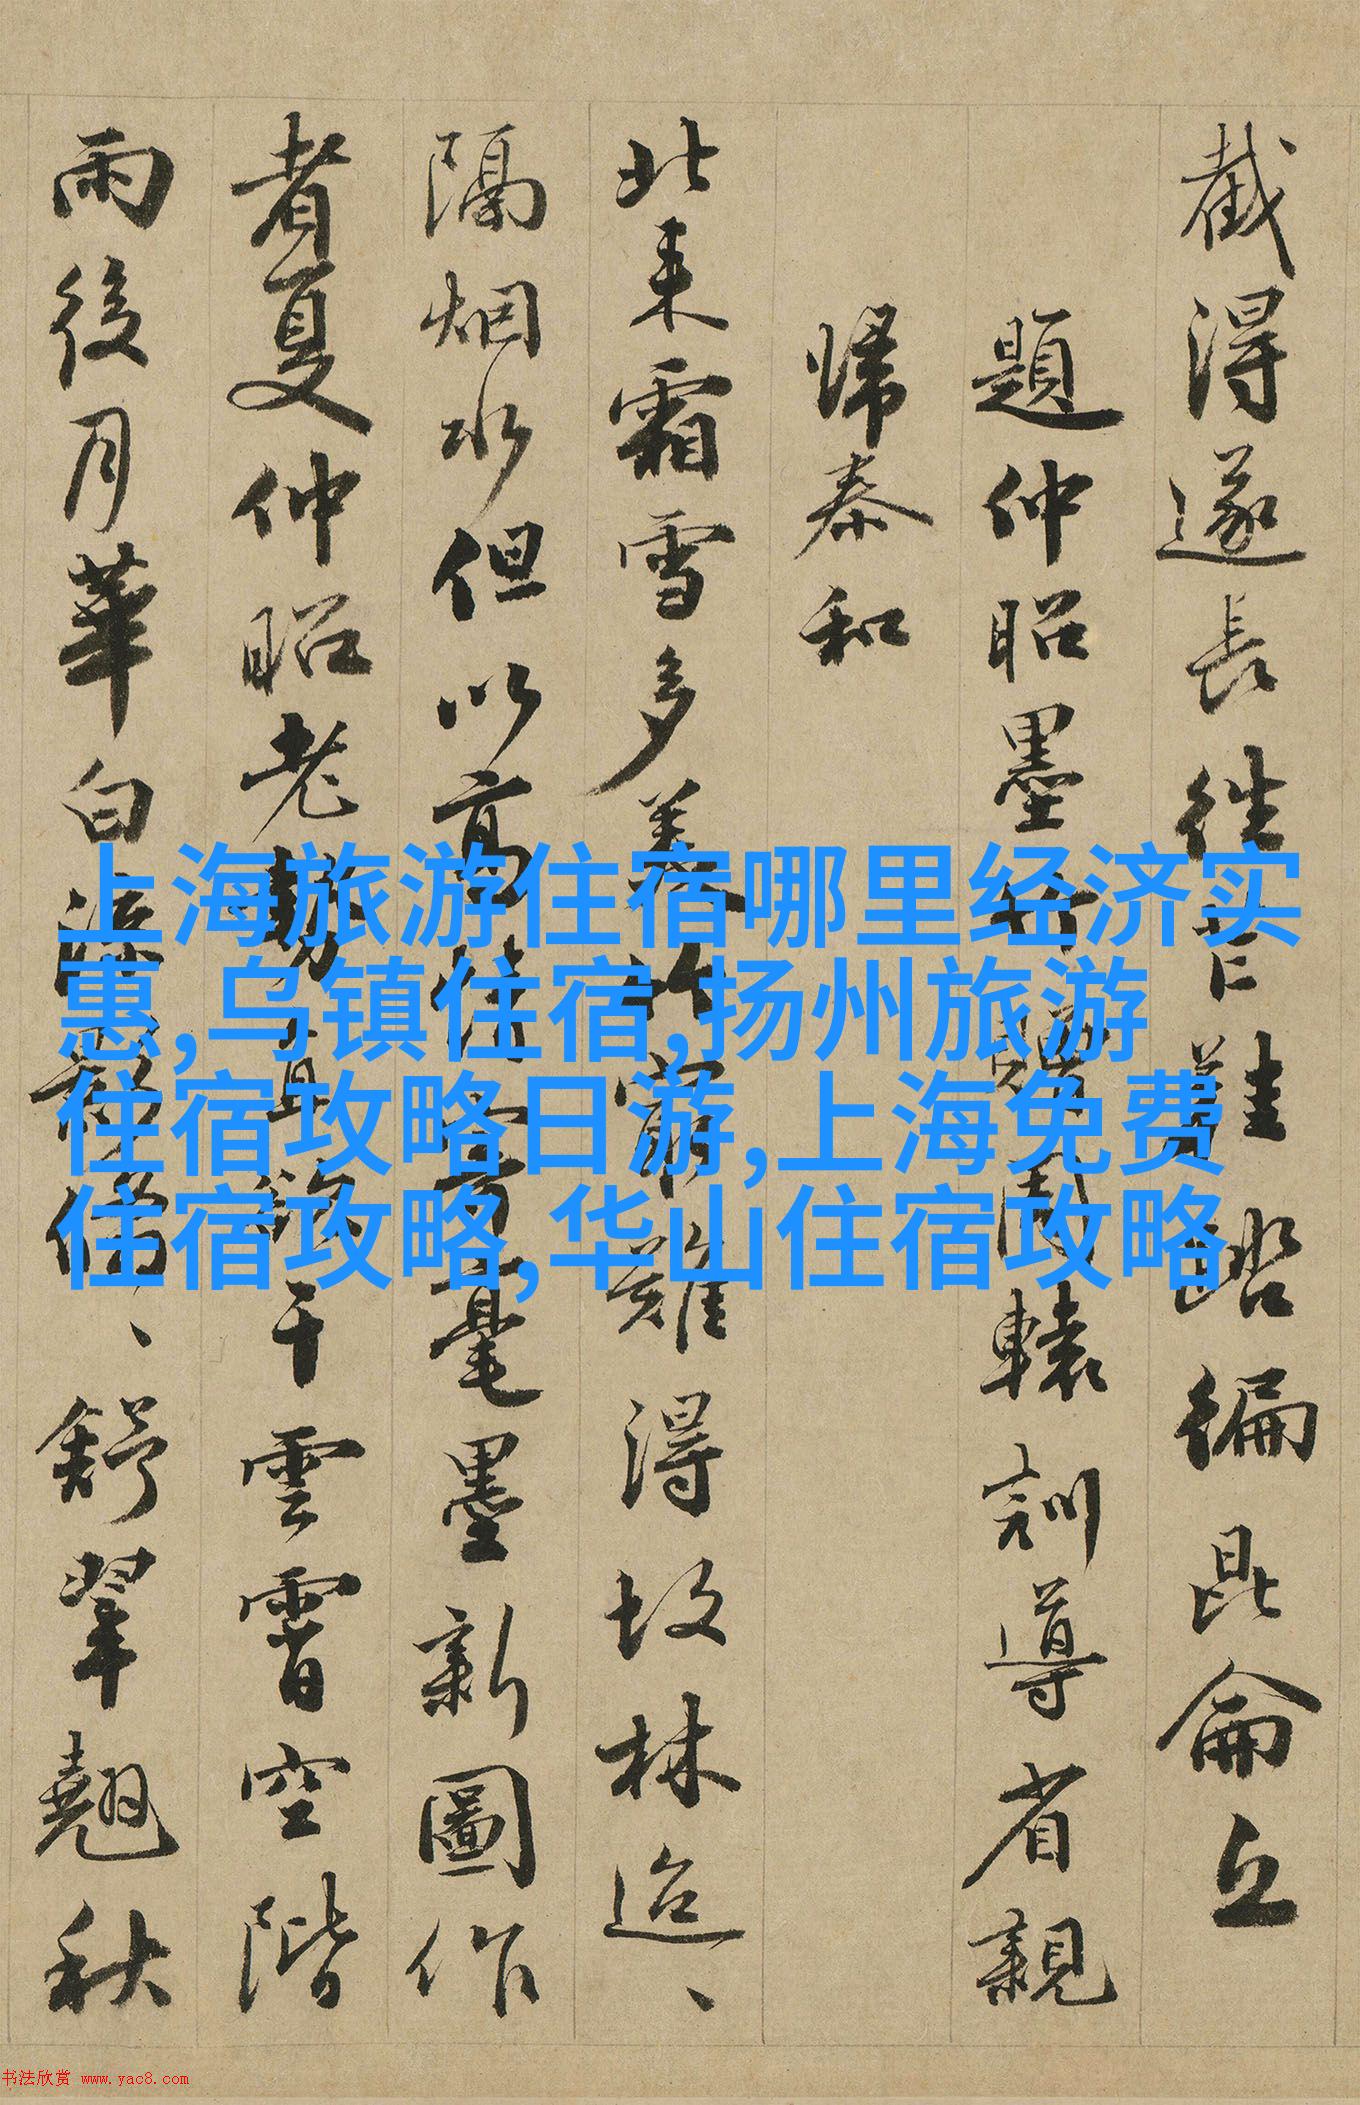 截得遂長往
題仲昭墨竹
歸秦和
北來霜雪多
隔烟水但以高情
者夏仲昭老
雨後月華白
昆侖丘
轅訓導省親
難得故林迢、
毫墨新圖作
干雲霄空階
舒翠翹秋
上海旅游住宿哪里经济实
惠,乌镇住宿,扬州旅游
住宿攻略日游,上海免费
住宿攻略,华山住宿攻略
书法欣赏 www.yac8.com